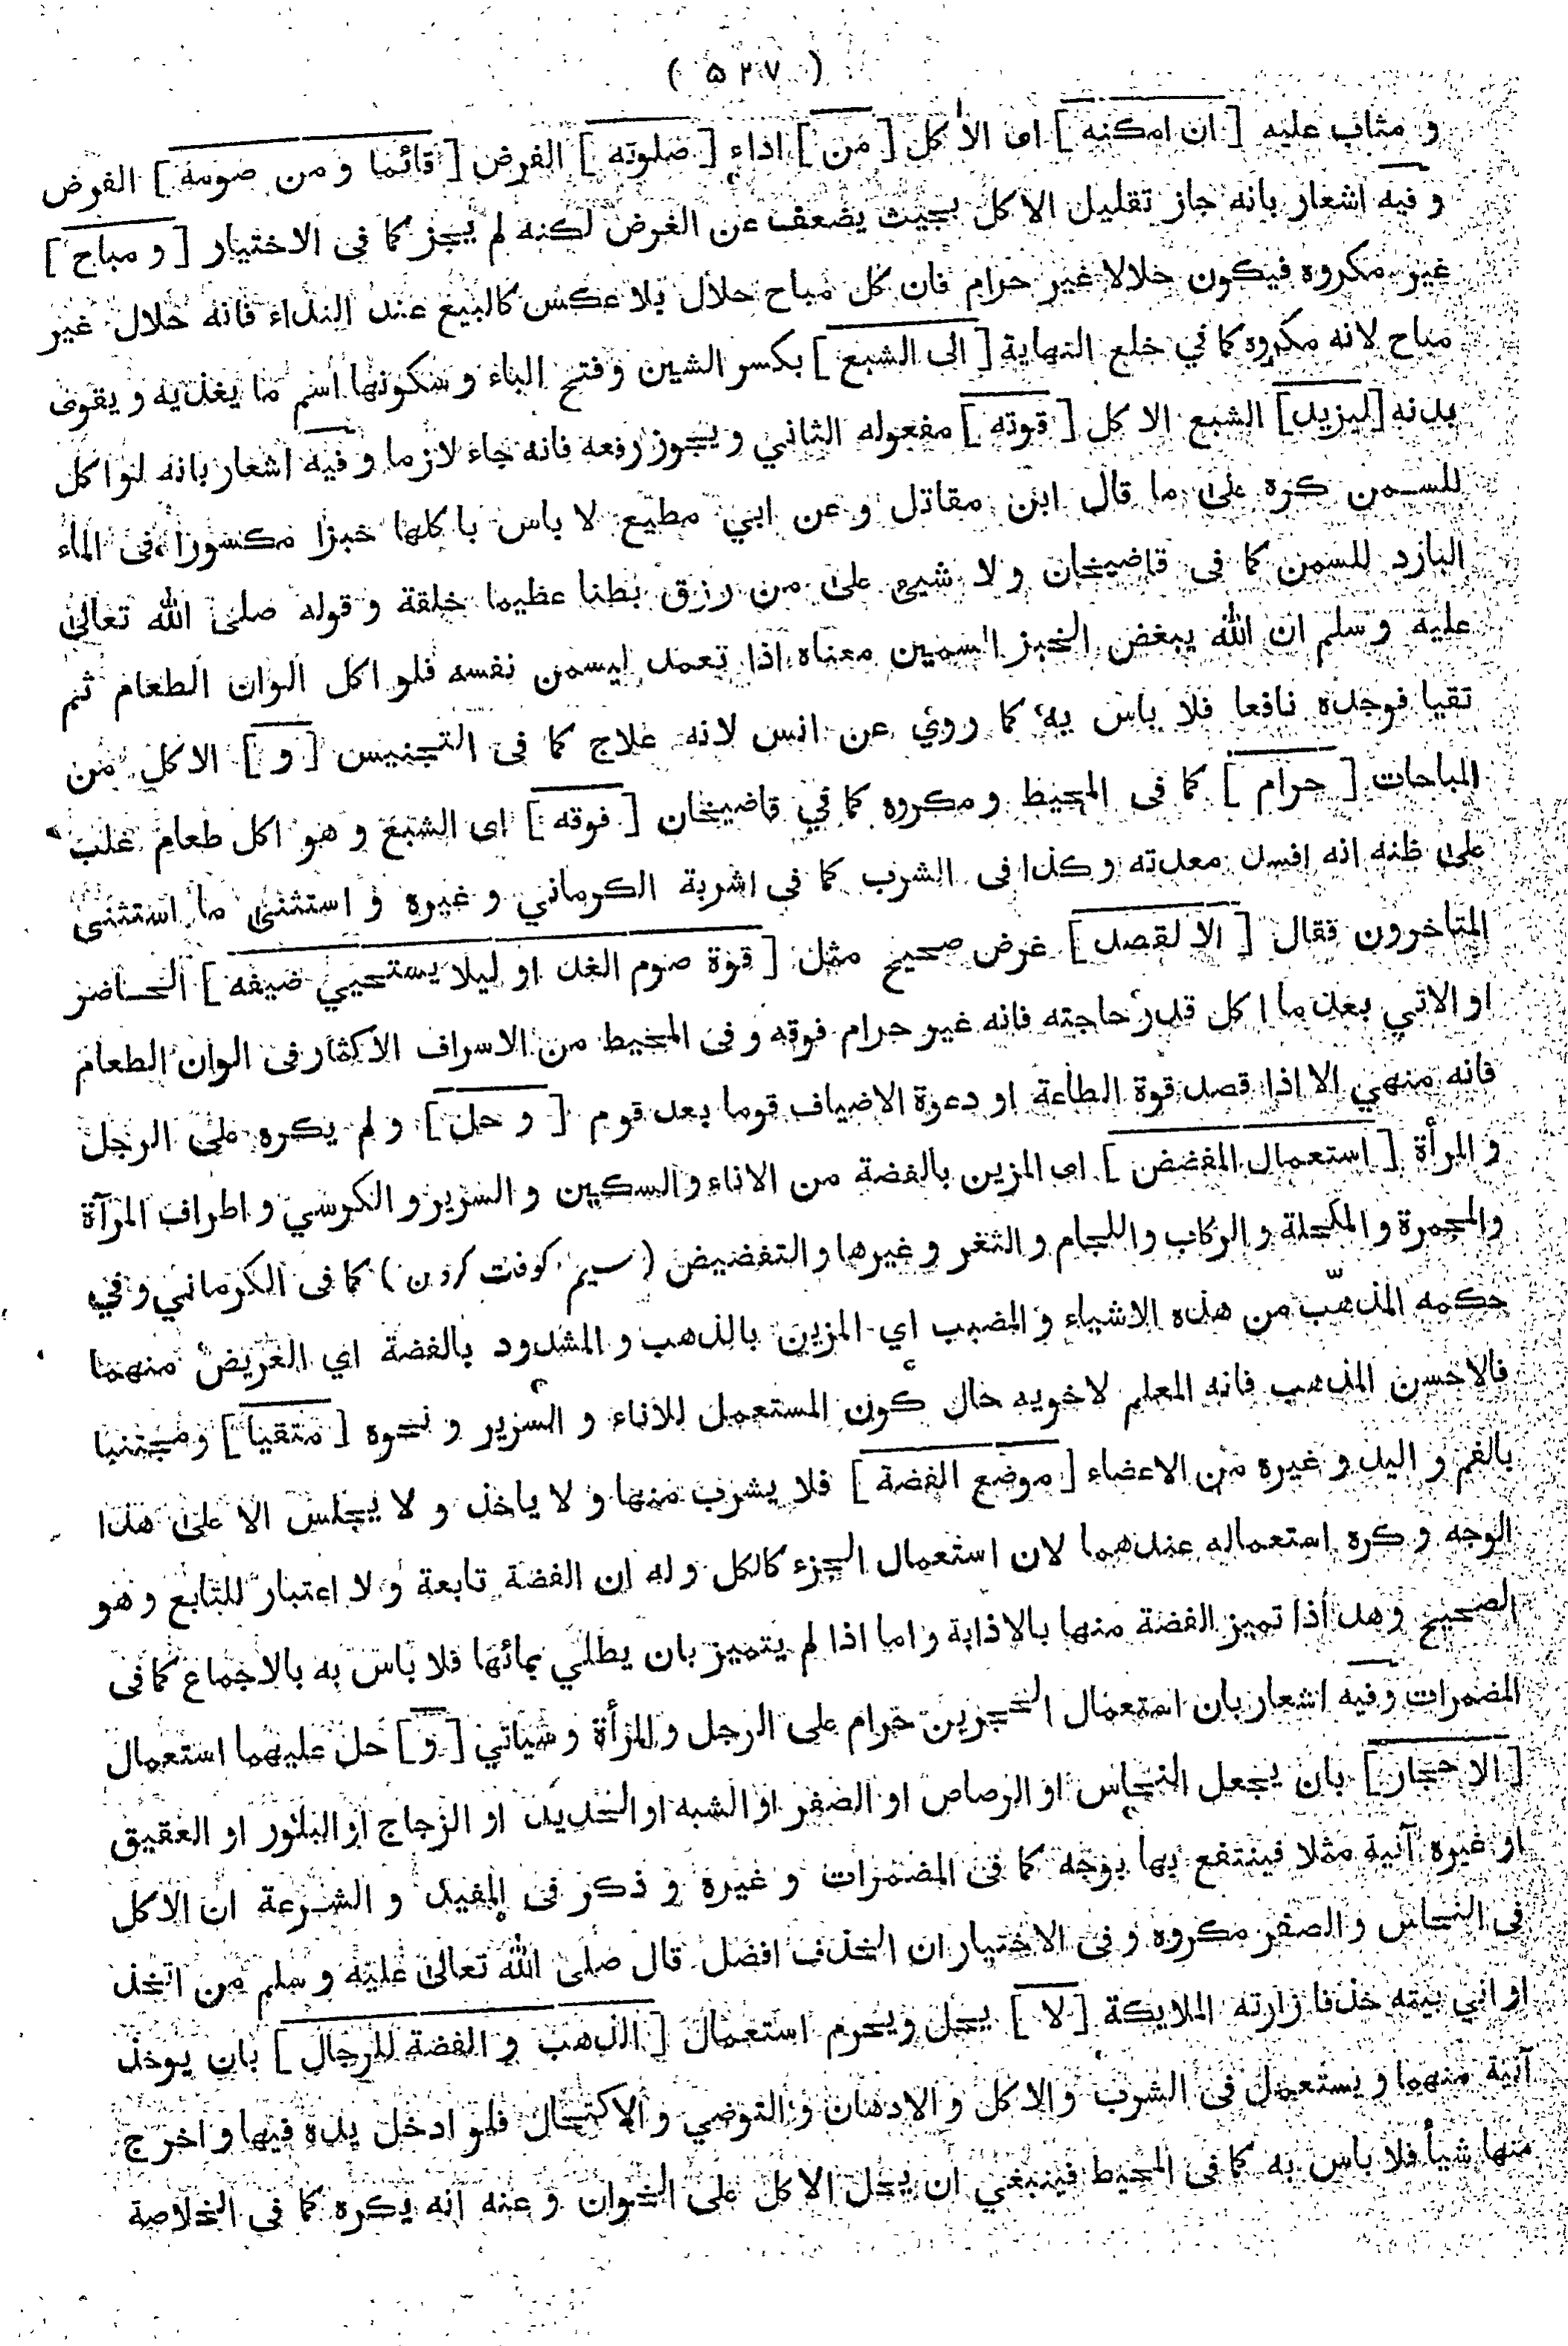 ( ۵۲۷ )
و مثاب عليه [ ان امكنه ] اى الاكل [ من ] اداء [ صلوته ] الفرض [ قائما و من صومه ] الفرض
و فيه اشعار بانه جاز تقليل الاكل بحيث يضعف عن الغرض لكنه لم يجز كما فى الاختيار [ و مباح ]
غير مكروه فيكون حلالا غير حرام فان كل مباح حلال بلا عكس كالبيع عند النداء فانه حلال غير
مباح لانه مكروه كما في خلع النهاية [ الى الشبع ] بكسر الشين و فتح الباء و سكونها اسم ما يغذيه و يقوى
بدنه [ ليزيد ] الشبع الاكل [ قوته ] مفعوله الثاني و يجوز رفعه فانه جاء لازما و فيه اشعار بانه لو اكل
للسمن كره على ما قال ابن مقاتل و عن ابي مطيع لا باس باكلها خبزا مكسورا فى الماء
البارد للسمن كما فى قاضيخان و لا شيئ على من رزق بطنا عظيما خلقة و قوله صلى الله تعالى
عليه و سلم ان الله يبغض الخبز السمين معناه اذا تعمد ليسمن نفسه فلو اكل الوان الطعام ثم
تقيا فوجده نافعا فلا باس به كما روي عن انس لانه علاج كما فى التجنيس [ و ] الاكل من
المباحات [ حرام ] كما فى المحيط و مكروه كما في قاضيخان [ فوقه ] اى الشبع و هو اكل طعام غلب
على ظنه انه افسد معدته و كذا فى الشرب كما فى اشربة الكرماني و غيره و استثنى ما استثنى
المتاخرون فقال [ الا لقصد ] غرض صحيح مثل [ قوة صوم الغد او ليلا يستحيي ضيفه ] الحاضر
او الاتي بعد ما اكل قدر حاجته فانه غير حرام فوقه و فى المحيط من الاسراف الاكثار فى الوان الطعام
فانه منهي الا اذا قصد قوة الطاعة او دعوة الاضياف قوما بعد قوم [ و حل ] و لم يكره على الرجل
و المرأة [ استعمال المفضض ] اى المزين بالفضة من الاناء و السكين و السرير و الكرسي و اطراف المرآة
والمجمرة و المكحلة و الركاب و اللجام و الثغر و غيرها و التفضيض ( سيم كوفت كردن ) كما فى الكرماني و في
حكمه المذهّب من هذه الاشياء و المضبب اي المزين بالذهب و المشدود بالفضة اي العريض منهما
فالاحسن المذهب فانه المعلم لاخويه حال كون المستعمل للاناء و السرير و نحوه [ متقيا ] و مجتنبا
بالفم و اليد و غيره من الاعضاء [ موضع الفضة ] فلا يشرب منها و لا ياخذ و لا يجلس الا على هذا
الوجه و كره استعماله عندهما لان استعمال الجزء كالكل و له ان الفضة تابعة و لا اعتبار للتابع و هو
الصحيح و هذا اذا تميز الفضة منها بالاذابة و اما اذا لم يتميز بان يطلي بمائها فلا باس به بالاجماع كما فى
المضمرات و فيه اشعار بان استعمال الحجرين حرام على الرجل و المرأة و سياتي [ و ] حل عليهما استعمال
[ الاحجار ] بان يجعل النحاس او الرصاص او الصفر او الشبه او الحديد او الزجاج او البلور او العقيق
او غيره آنية مثلا فينتفع بها بوجه كما فى المضمرات و غيره و ذكر فى المفيد و الشرعة ان الاكل
فى النحاس و الصفر مكروه و فى الاختيار ان الخذف افضل قال صلى الله تعالى عليه و سلم من اتخذ
اواني بيته خذفا زارته الملايكة [ لا ] يحل و يحرم استعمال [ الذهب و الفضة للرجال ] بان يوخذ
آنية منهما و يستعمل فى الشرب و الاكل و الادهان و التوضي و الاكتحال فلو ادخل يده فيها و اخرج
منها شيأ فلا باس به كما فى المحيط فينبغي ان يحل الاكل على الخوان و عنه انه يكره كما فى الخلاصة